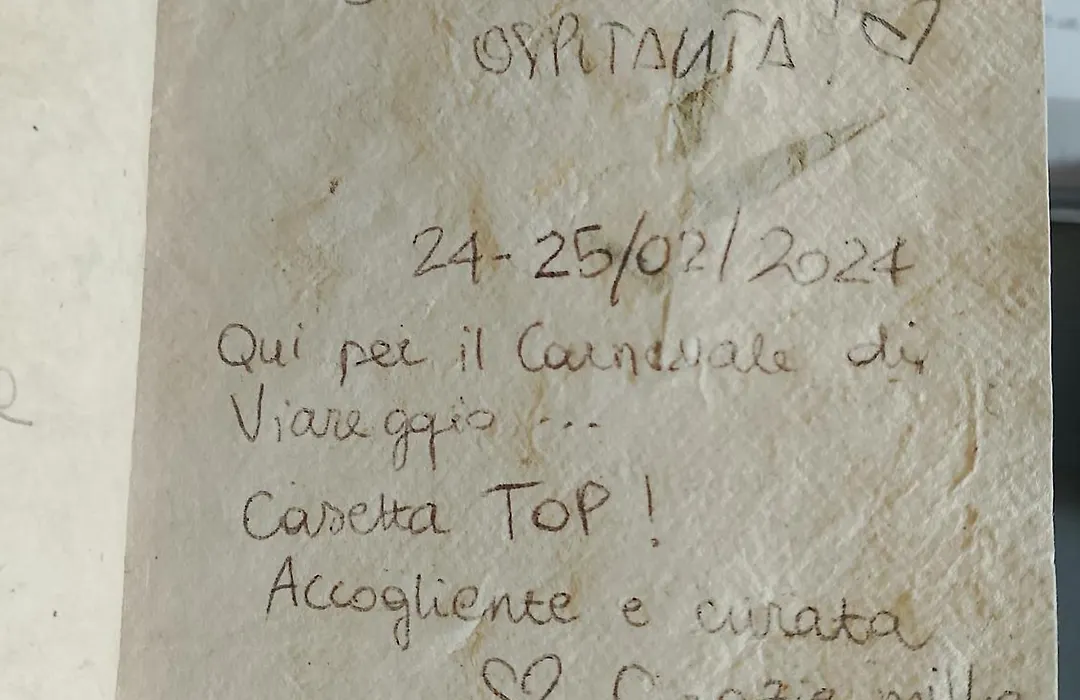 OSPITALITA! ♡
24-25/02/2024
Qui per il Carnevale di
Viareggio ...
Casetta TOP!
Accogliente e curata
♡ Grazie mille